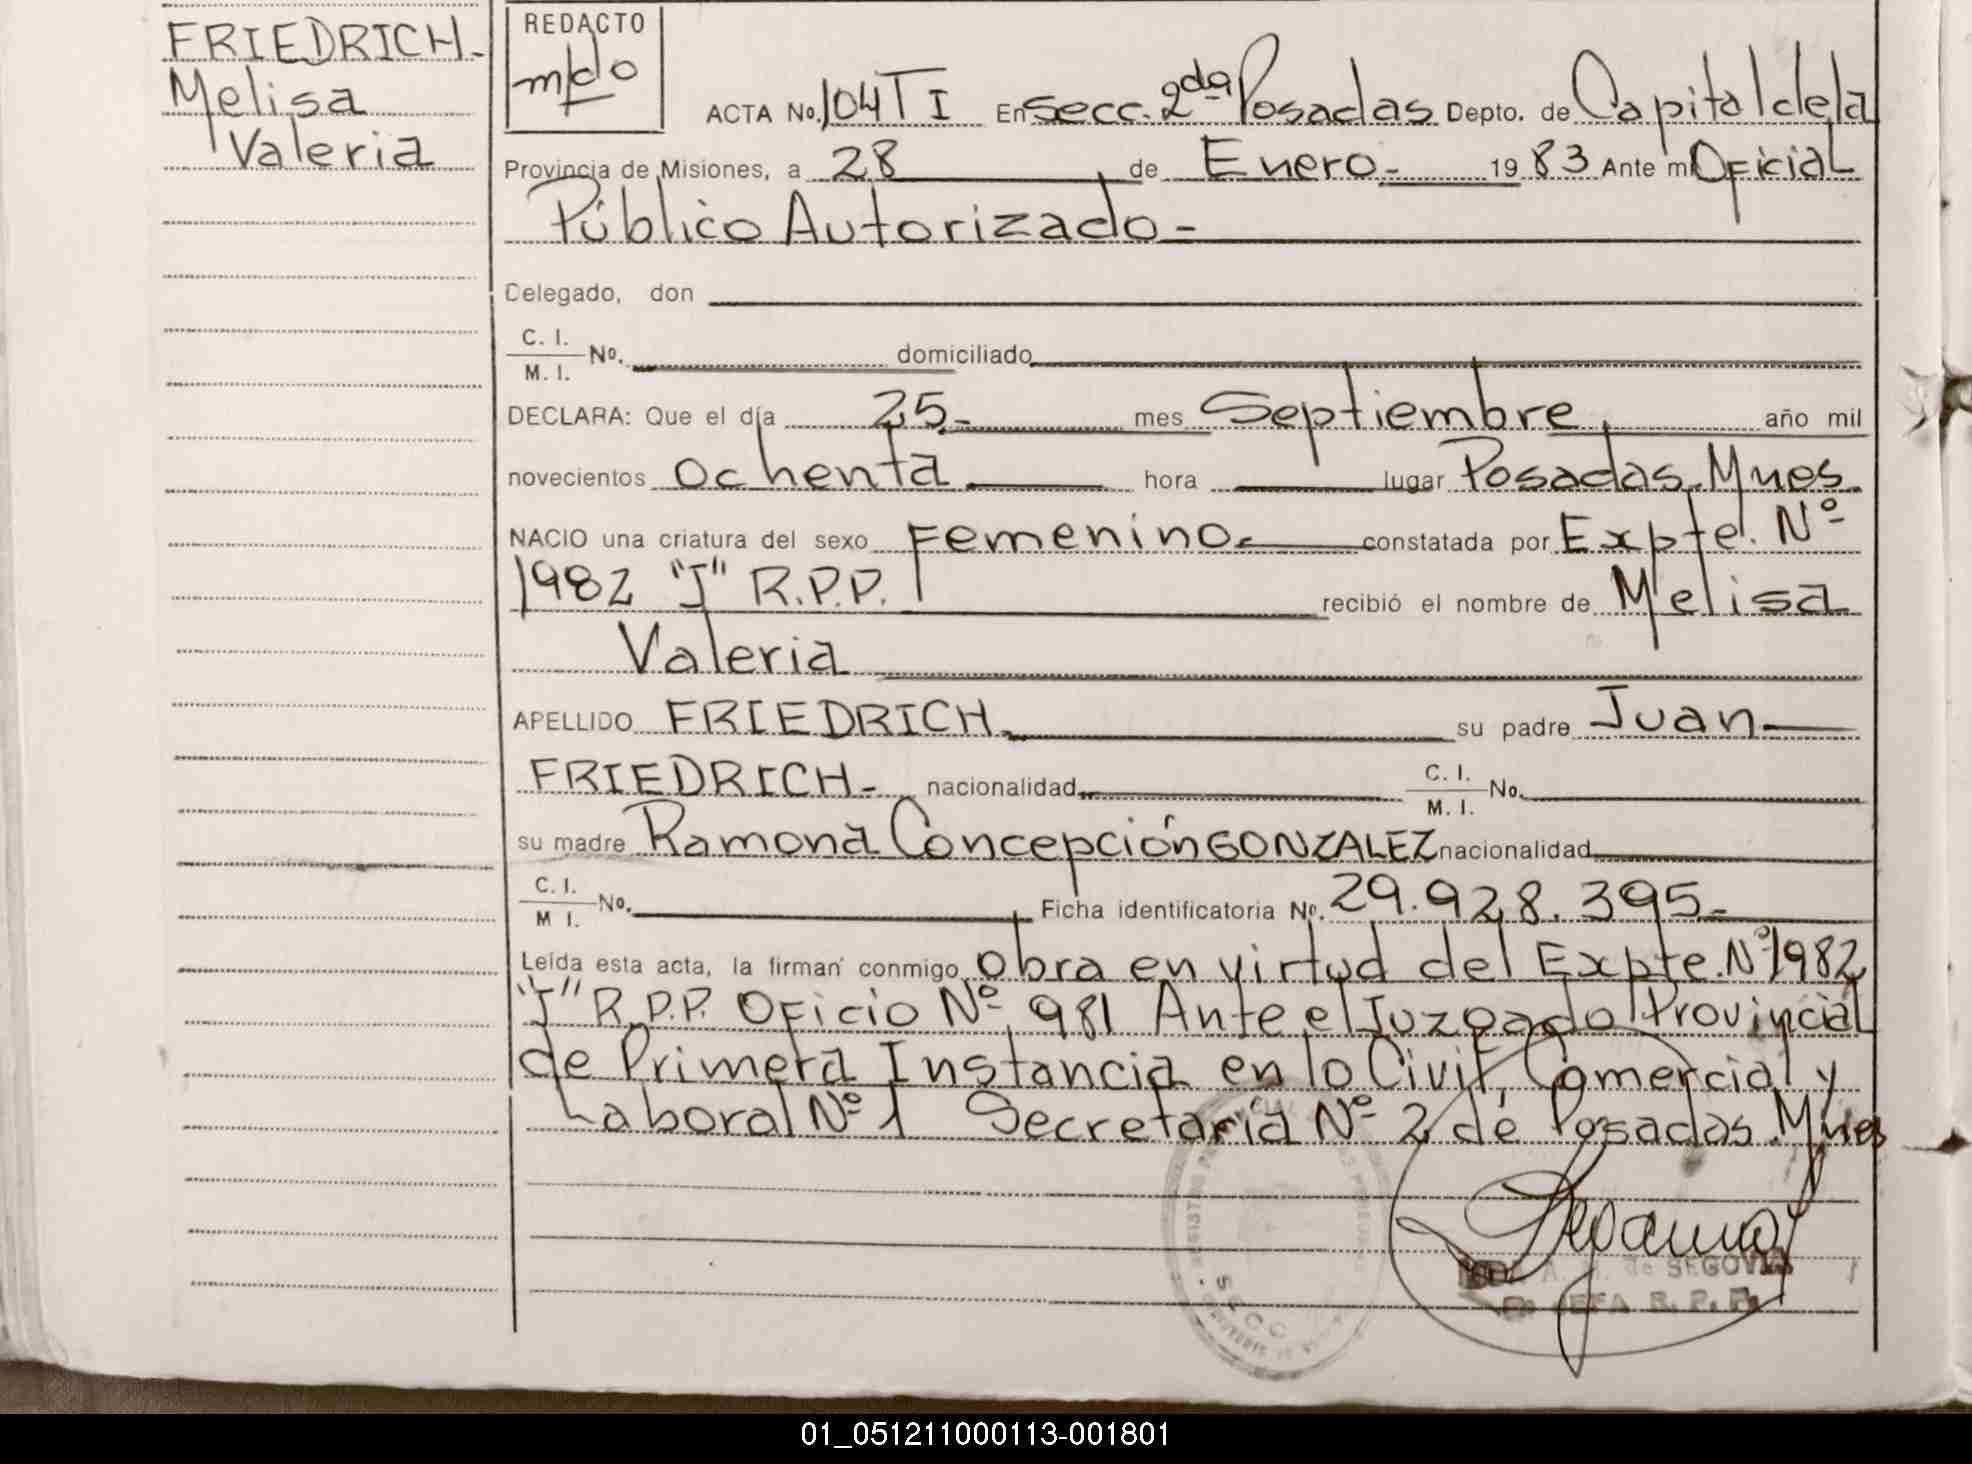 FRIEDRICH-
Melisa
Valeria
REDACTO
ACTA No. 104 T I En Secc. 2da Posadas Depto. de Capital de la
Provincia de Misiones, a 28 de Enero- 1983 Ante mi Oficial
Público Autorizado-
Delegado, don
C. I.
M. I. No. domiciliado
DECLARA: Que el día 25- mes Septiembre año mil
novecientos ochenta hora lugar Posadas. Mnes.
NACIO una criatura del sexo Femenino. constatada por Expte. Nº
1982 "J" R.P.P. recibió el nombre de Melisa
Valeria
APELLIDO FRIEDRICH su padre Juan
FRIEDRICH- nacionalidad C. I.
M. I. No.
su madre Ramona Concepción GONZALEZ nacionalidad
C. I.
M I. No. Ficha identificatoria No. 29.928.395-
Leída esta acta, la firman conmigo Obra en virtud del Expte. Nº 1982
"J" R.P.P. Oficio Nº 981 Ante el Juzgado Provincial
de Primera Instancia en lo Civil, Comercial y
Laboral Nº 1 Secretaría Nº 2 de Posadas. Mnes
de SEGOVIA
JEFA R. P. P.
SECC
01_051211000113-001801